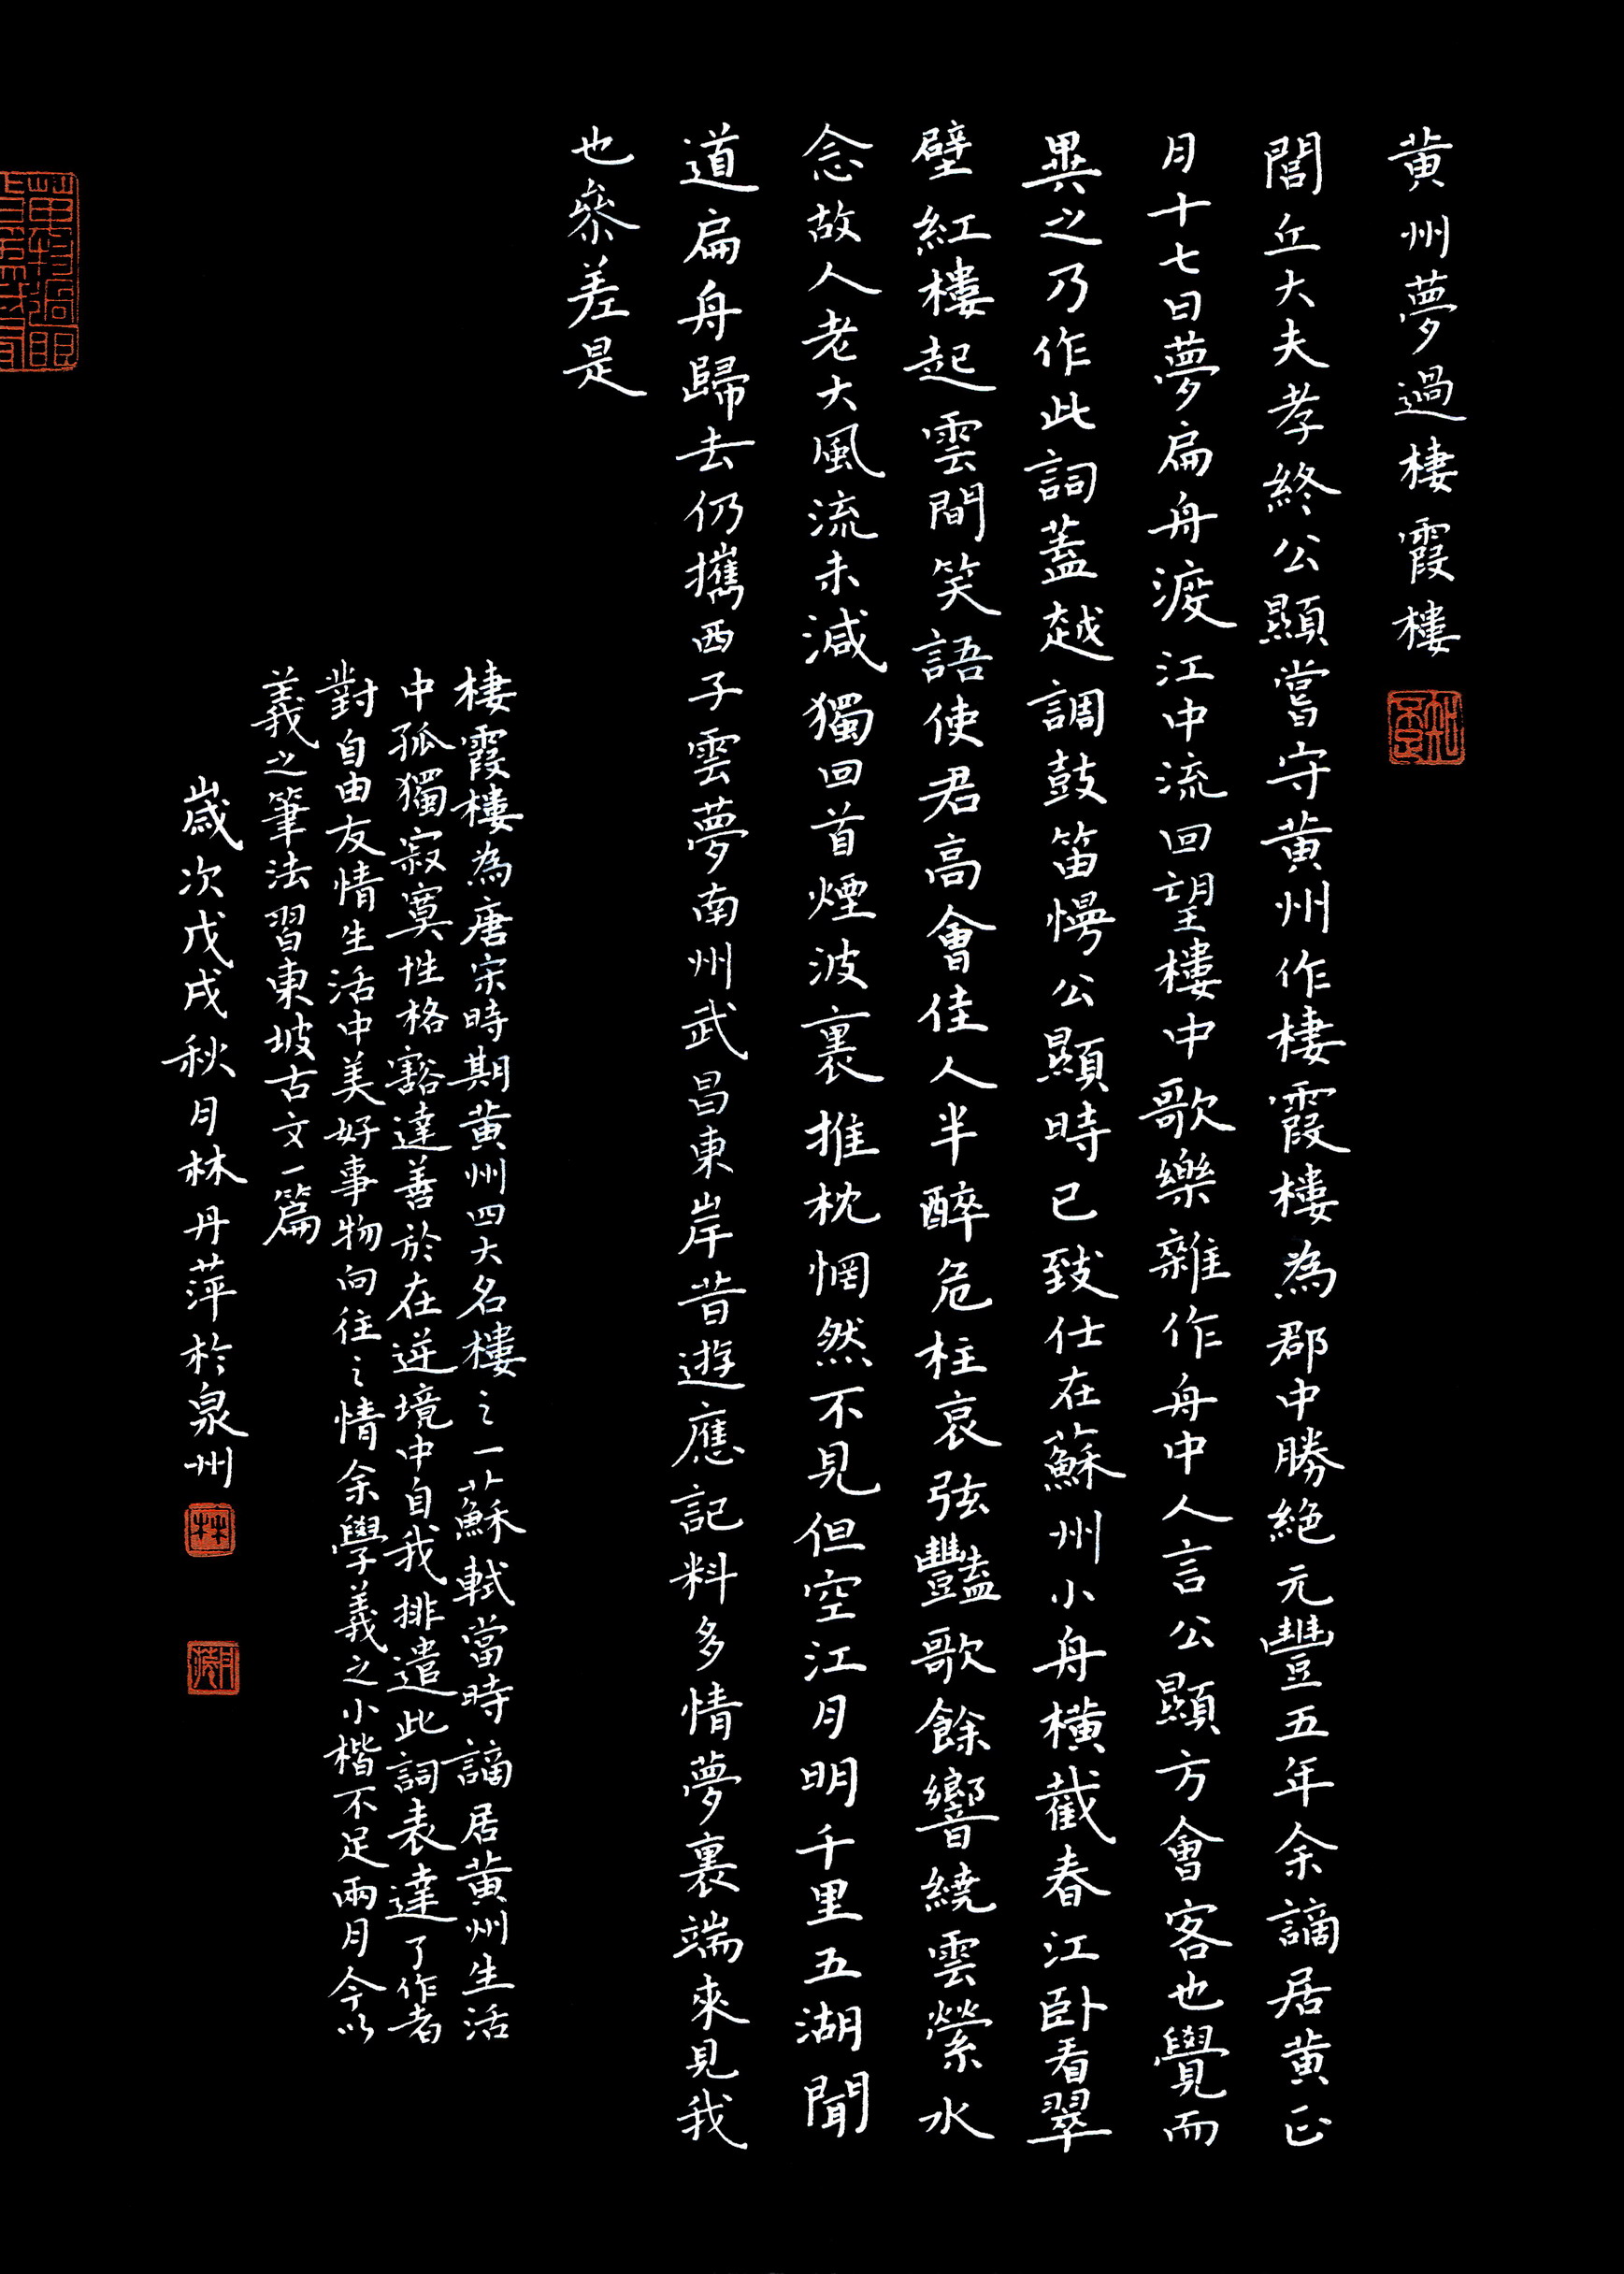 黄州夢過棲霞樓
閭丘大夫孝終公顯嘗守黄州作棲霞樓為郡中勝絶元豐五年余謫居黄正
月十七日夢扁舟渡江中流回望樓中歌樂雜作舟中人言公顯方會客也覺而
異之乃作此詞蓋越調鼓笛慢公顯時已致仕在蘇州小舟橫截春江卧看翠
壁紅樓起雲間笑語使君高會佳人半醉危柱哀弦豔歌餘響繞雲縈水
念故人老大風流未減獨回首煙波裏推枕惘然不見但空江月明千里五湖聞
道扁舟歸去仍攜西子雲夢南州武昌東岸昔遊應記料多情夢裏端來見我
也參差是
棲霞樓為唐宋時期黄州四大名樓之一蘇軾當時謫居黄州生活
中孤獨寂寞性格豁達善於在逆境中自我排遣此詞表達了作者
對自由友情生活中美好事物向往之情余學義之小楷不足兩月今以
義之筆法習東坡古文一篇
歲次戊戌秋月林丹萍於泉州
林